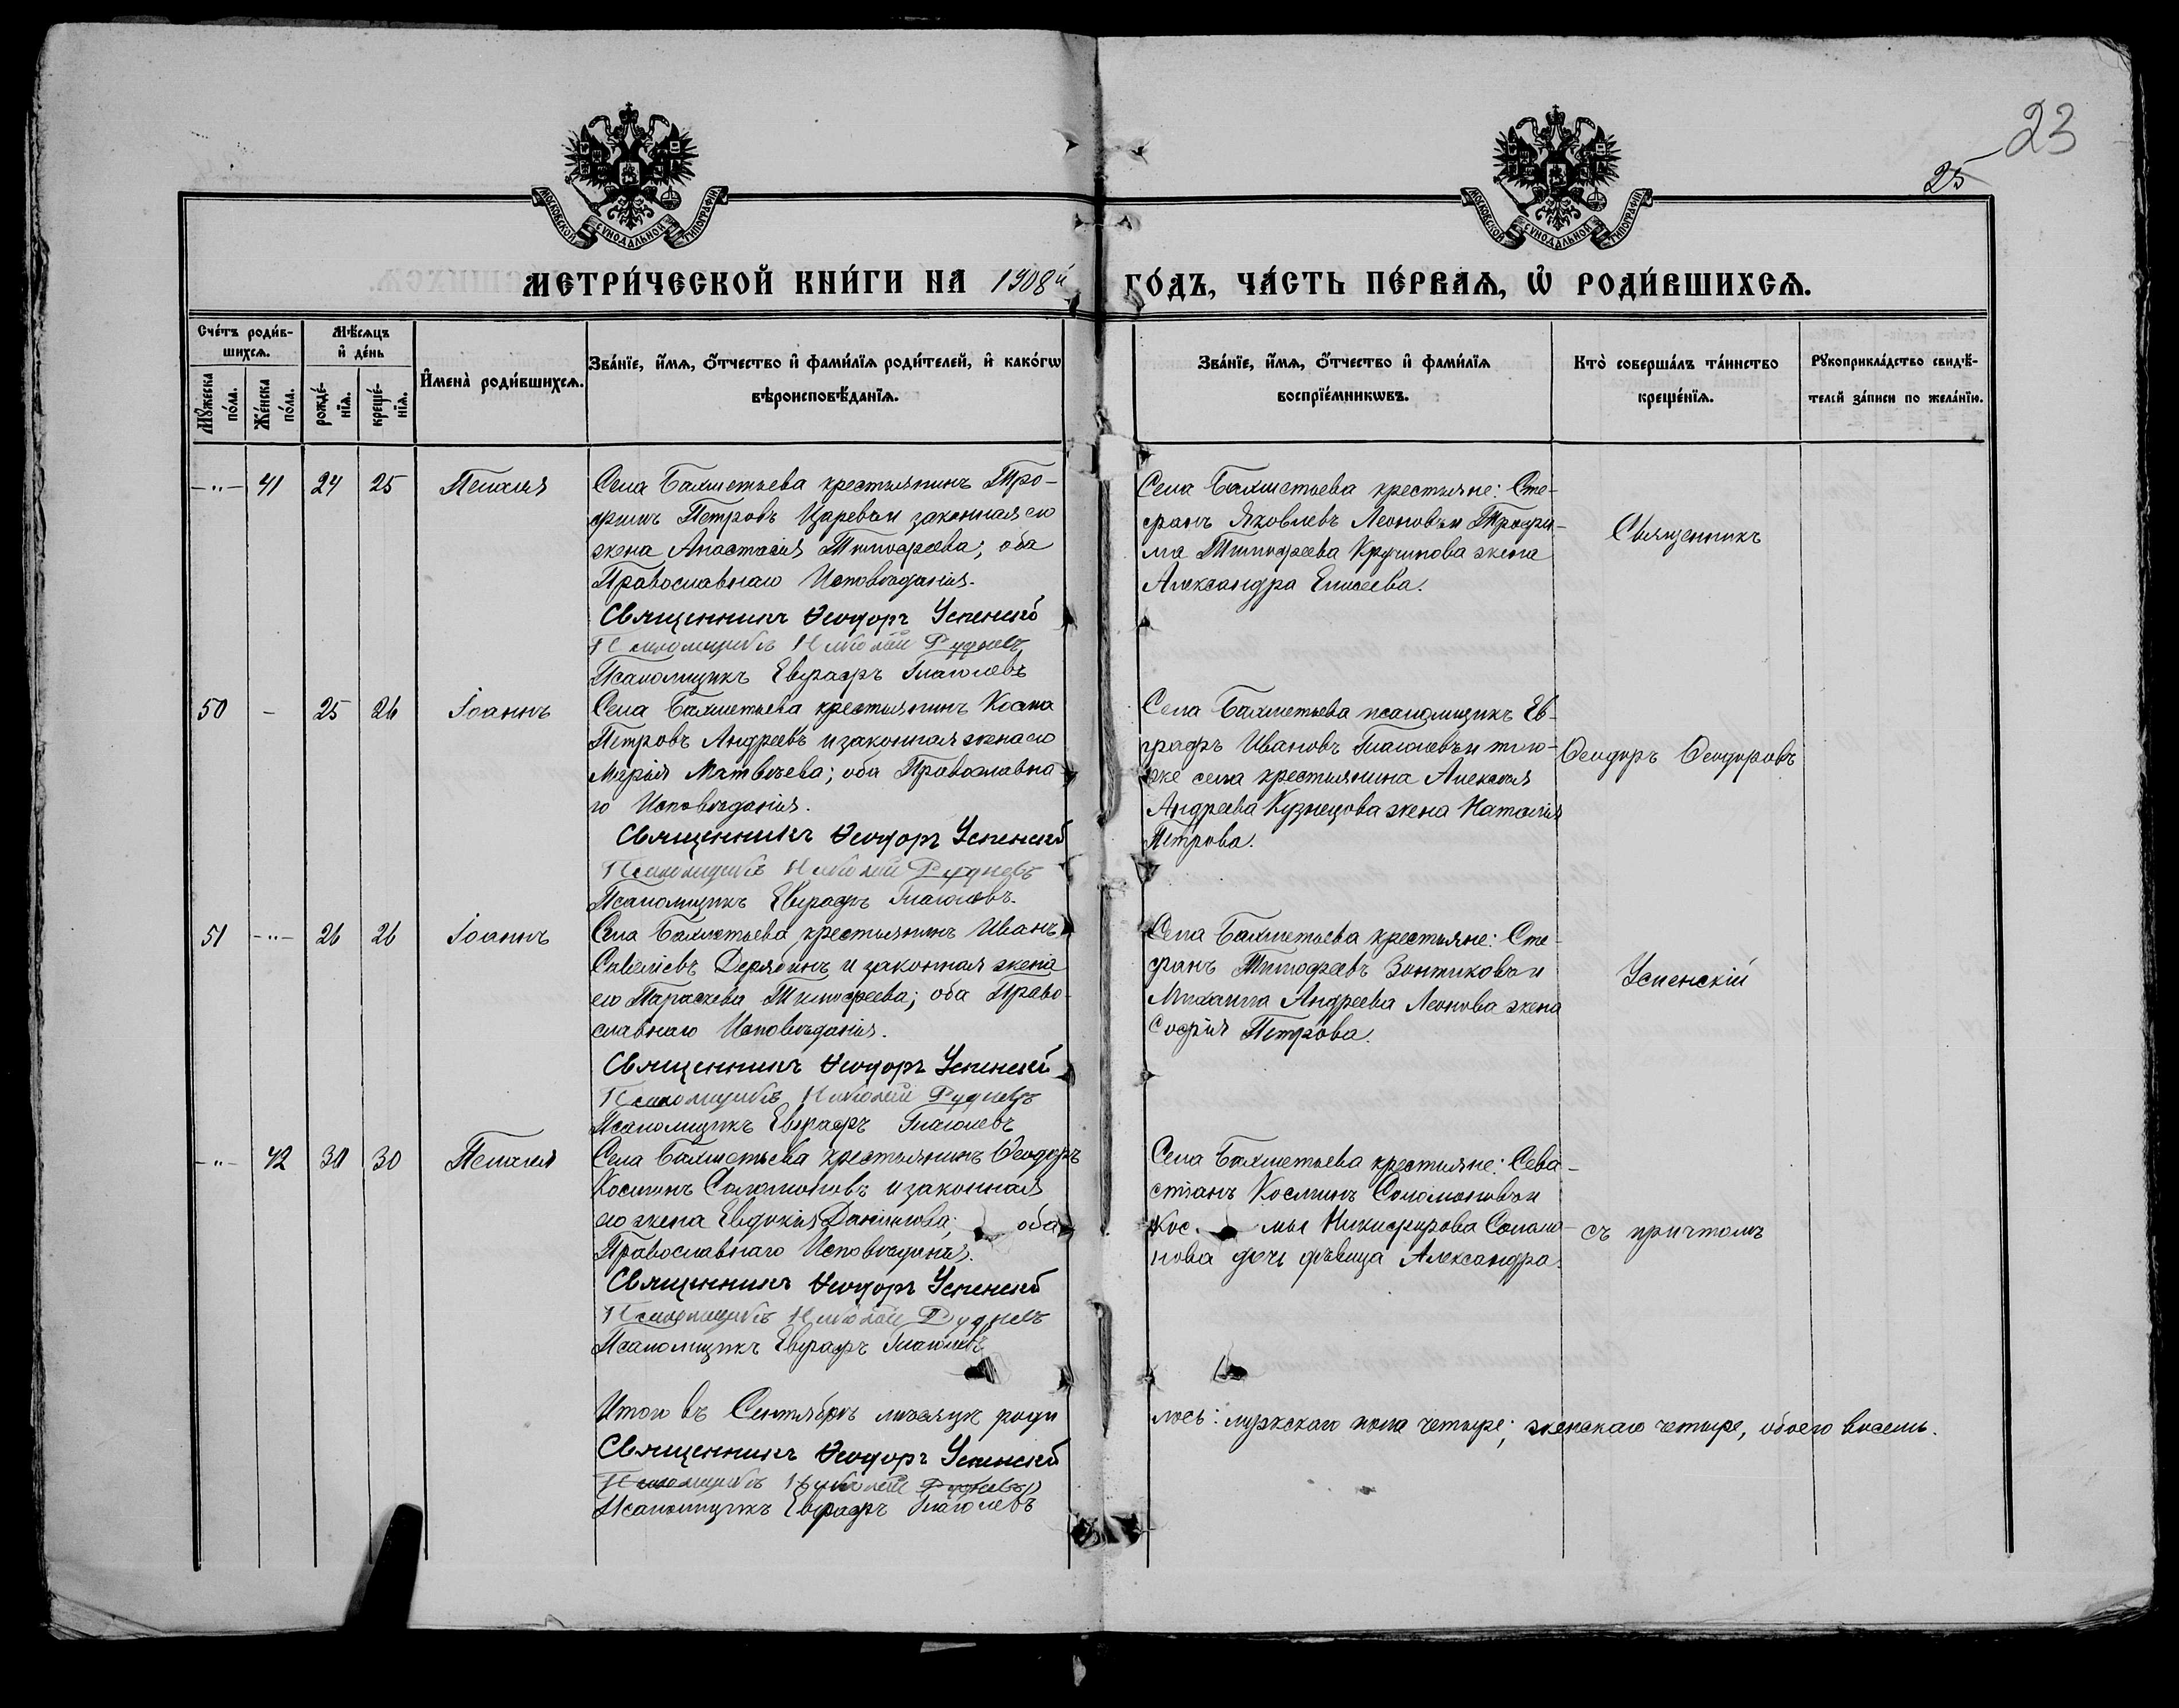 23
25
МОСКОВСКОЙ СУНОДАЛЬНОЙ ТИПОГРАФІИ
МОСКОВСКОЙ СУНОДАЛЬНОЙ ТИПОГРАФІИ
МЕТРИ́ЧЕСКОЙ КНИ́ГИ НА 1908й ГО́ДЪ, ЧА́СТЬ ПЕ́РВАѦ, Ѡ҆ РОДИ́ВШИХСѦ.
Сче́тъ роди́в-
шихсѧ.
Мꙋ́жеска
по́ла.
Же́нска
по́ла.
Мѣ́сѧцъ
и҆ де́нь
рожде́-
нїѧ.
креще́-
нїѧ.
И҆мена̀ роди́вшихсѧ.
Зва́нїе, и҆́мѧ, ѻ҆́тчество и҆ фами́лїѧ роди́телей, и҆ како́гѡ
вѣроисповѣ́данїѧ.
Зва́нїе, и҆́мѧ, ѻ҆́тчество и҆ фами́лїѧ
воспрїе́мникѡвъ.
Кто̀ соверша́лъ та́инство
креще́нїѧ.
Рꙋкоприкла́дство свидѣ́-
телей за́писи по жела́нїю.
-"- 41 24 25 Пелагія
Села Бахметьева крестьянинъ Тро-
фимъ Петровъ Царевъ и законная его
жена Анастасія Тимофеева; оба
Православнаго Исповѣданія.
Священникъ Ѳеодоръ Успенскій
Псаломщикъ Николай Рудневъ
Псаломщикъ Евграфъ Глаголевъ
Села Бахметьева крестьяне: Сте-
фанъ Яковлевъ Леоновъ и Трофи-
ма Тимофеева Кручинова жена
Александра Елисеева.
Священникъ
50 - 25 26 Іоаннъ
Села Бахметьева крестьянинъ Косма
Петровъ Андреевъ и законная жена его
Марія Матвѣева; оба Православна-
го Исповѣданія.
Священникъ Ѳеодоръ Успенскій
Псаломщикъ Николай Рудневъ
Псаломщикъ Евграфъ Глаголевъ.
Села Бахметьева псаломщикъ Ев-
графъ Ивановъ Глаголевъ и того-
же села крестьянина Алексѣя
Андреева Кузнецова жена Наталія
Петрова.
Ѳеодоръ Ѳеодоровъ
51 -"- 26 26 Іоаннъ
Села Бахметьева крестьянинъ Иванъ
Савеліевъ Дерябинъ и законная жена
его Параскева Тимофеева; оба Право-
славнаго Исповѣданія.
Священникъ Ѳеодоръ Успенскій
Псаломщикъ Николай Рудневъ
Псаломщикъ Евграфъ Глаголевъ
Села Бахметьева крестьяне: Сте-
фанъ Тимофеевъ Зонтиковъ и
Михаила Андреева Леонова жена
Софія Петрова.
Успенскій
-"- 42 30 30 Пелагія
Села Бахметьева крестьянинъ Ѳеодоръ
Косминъ Саломоновъ и законная
его жена Евдокія Даниилова; оба
Православнаго Исповѣданія.
Священникъ Ѳеодоръ Успенскій
Псаломщикъ Николай Рудневъ
Псаломщикъ Евграфъ Глаголевъ
Села Бахметьева крестьяне: Сева-
стіанъ Косминъ Соломоновъ и
Кос мы Никифорова Соломо-
нова дочь дѣвица Александра.
съ причтомъ
Итого въ Сентябрѣ мѣсяцѣ роди лось: мужскаго пола четыре; женскаго четыре, обоего восемь.
Священникъ Ѳеодоръ Успенскій
Псаломщикъ Николай Рудневъ
Псаломщикъ Евграфъ Глаголевъ